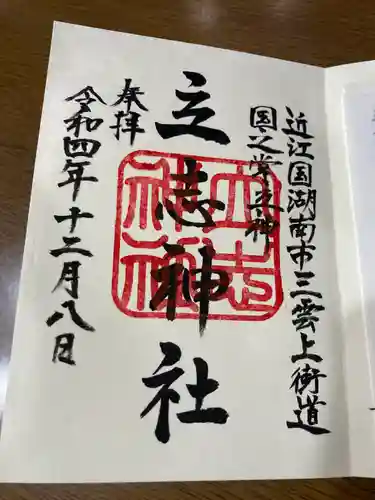 近江国湖南市三雲上街道
国之常立神
立志神社
奉拝
令和四年十二月八日